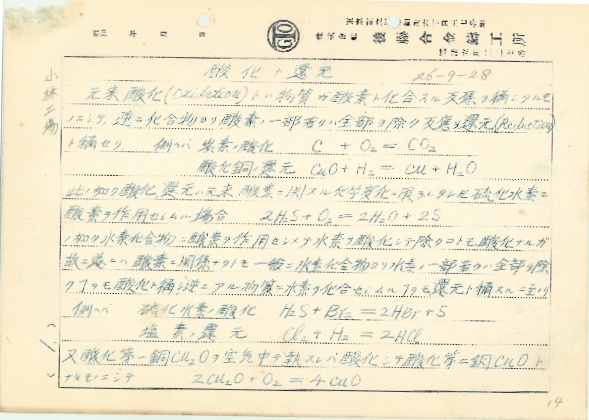 株式会社 後藤合金鋳工所
昭和 年 月 日
小林工場
酸化ト還元 26-9-28
元来酸化(Oxidation)トハ物質ガ酸素ト化合スル反應ヲ稱シタルモ
ノニシテ、逆ニ化合物ヨリ酸素ノ一部若クハ全部ヲ除ク反應ヲ還元(Reduction)
ト稱セリ 例ヘバ 炭素ノ酸化 C + O₂ = CO₂
酸化銅ノ還元 CuO + H₂ = Cu + H₂O
此ノ如ク酸化、還元ハ元来、酸素ニ関スル化学変化ニ限ラレタレド硫化水素ニ
酸素ヲ作用セシムル場合 2H₂S + O₂ = 2H₂O + 2S
ノ如ク水素化合物ニ酸素ヲ作用セシメテ水素ヲ酸化シテ除クコトモ酸化ナルガ
故ニ遂ニハ酸素ニ関係ナクトモ一般ニ水素化合物ヨリ水素ノ一部若クハ全部ヲ除
クコトモ酸化ト稱シ逆ニアル物質ニ水素ヲ化合セシムルコトモ還元ト稱スルニ至リ
例ヘバ 硫化水素ノ酸化 H₂S + Br₂ = 2HBr + S
塩素ノ還元 Cl₂ + H₂ = 2HCl
又酸化第一銅Cu₂Oヲ空気中デ熱スレバ酸化シテ酸化第二銅CuOト
ナルモノニシテ 2Cu₂O + O₂ = 4CuO
(1.)
14